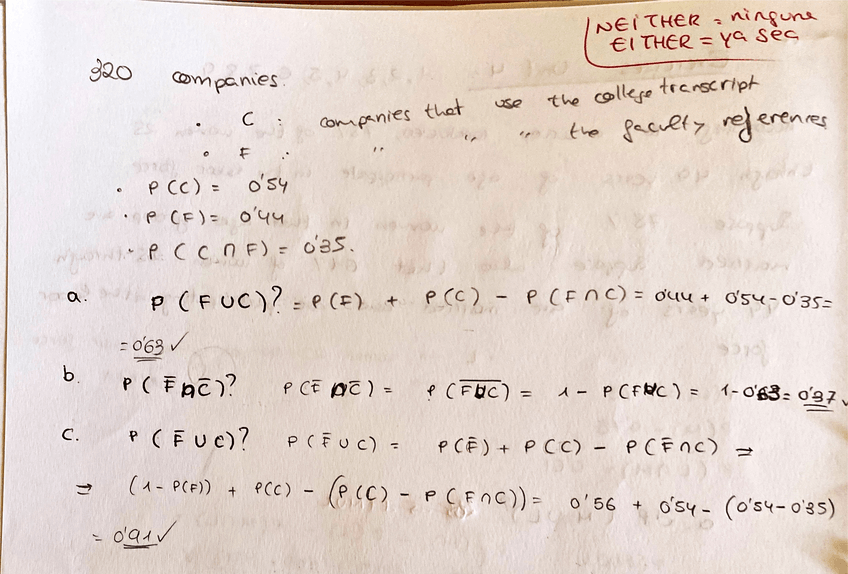 NEITHER = ninguna
EITHER = ya sea
320 companies.
· C : companies that use the college transcript
· F : " " " the faculty references
· P(C) = 0'54
· P(F) = 0'44
· P(C ∩ F) = 0'35.
a. P(F∪C)? = P(F) + P(C) - P(F∩C) = 0'44 + 0'54-0'35=
= 0'63 ✓
b. P(F̅∩C̅)? P(F̅∩C̅) = P(F̅∪̅C̅) = 1 - P(F∪C) = 1-0'63 = 0'37 ✓
c. P(F̅∪C)? P(F̅∪C) = P(F̅) + P(C) - P(F̅∩C) ⇒
⇒ (1-P(F)) + P(C) - (P(C) - P(F∩C)) = 0'56 + 0'54 - (0'54-0'35)
= 0'91 ✓